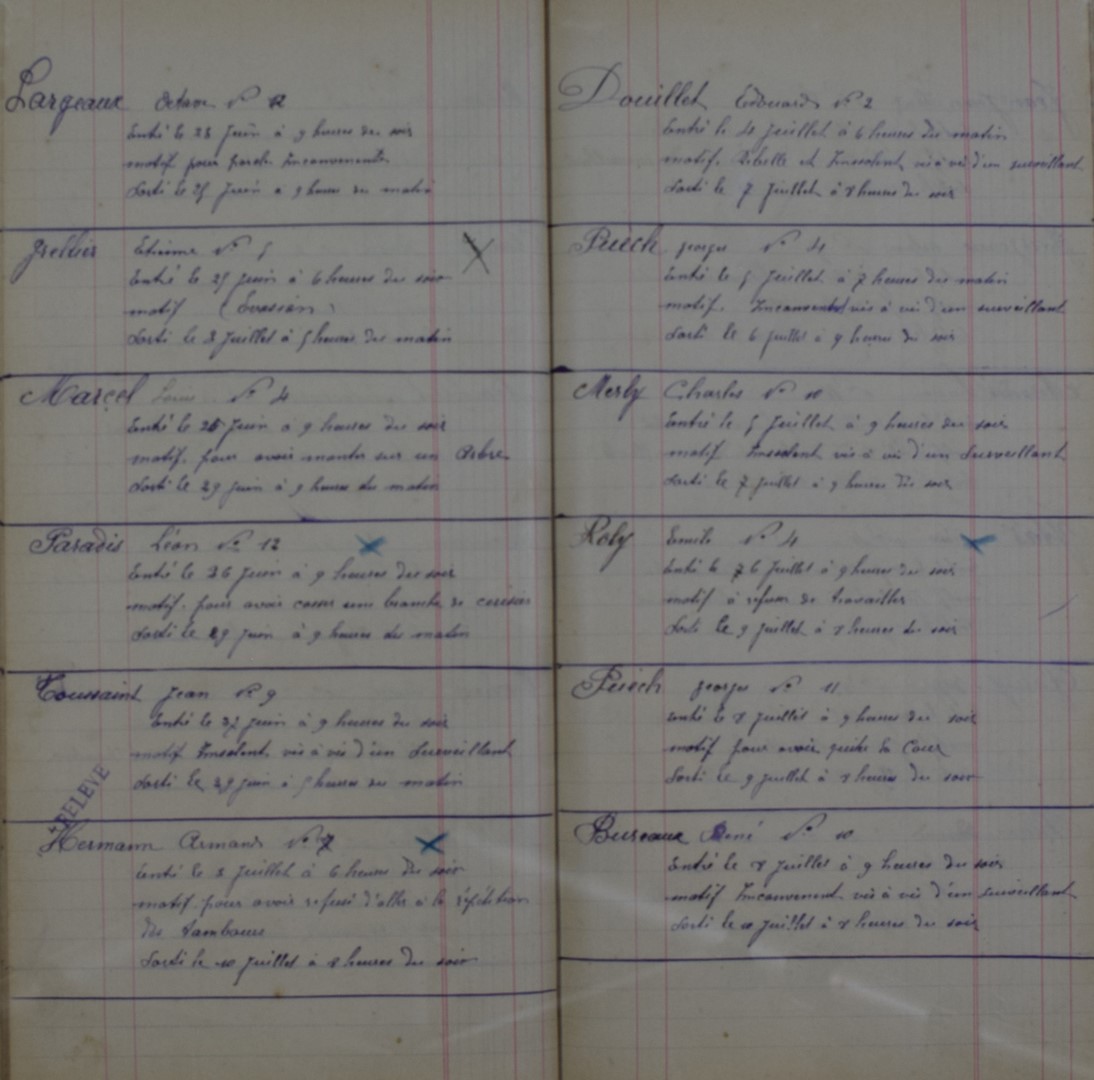 Largeaux Octave N° 12
Entré le 23 Juin à 9 heures du soir
motif pour parole Inconvenente
Sorti le 25 Juin à 9 heures du matin
Etienne N° 5
Entré le 25 Juin à 6 heures du soir
motif (Evasion)
Sorti le 3 Juillet à 5 heures du matin
Marcel Louis N° 4
Entré le 26 Juin a 9 heures du soir
motif. pour avoir monter sur un Arbre
Sorti le 29 Juin à 9 heures du matin
Paradis Léon N° 12
Entré le 26 Juin à 9 heures du soir
motif. pour avoir casser une branche de cerisier
Sorti le 29 Juin à 9 heures du matin
Toussaint Jean N° 9
Entré le 27 Juin à 9 heures du soir
motif Insolent vis à vis d'un Surveillant
Sorti le 29 Juin à 5 heures du matin
RELEVE
Hermann Armand N° 7
Entré le 3 Juillet à 6 heures du soir
motif. pour avoir refusé d'aller à la répétition
des tambours
Sorti le 10 Juillet à 8 heures du soir
Douillet Edouard N° 2
Entré le 4 Juillet à 6 heures du matin
motif. Rebelle et Insolent, vis à vis d'un surveillant
Sorti le 7 Juillet à 8 heures du soir
Puech georges N° 4
Entré le 5 Juillet à 7 heures du matin
motif. Inconvenent vis à vis d'un surveillant
Sorti le 6 Juillet à 9 heures du soir
Merly Charles N° 10
Entré le 5 Juillet à 9 heures du soir
motif Insolent vis à vis d'un Surveillant
Sorti le 7 Juillet à 9 heures du soir
Roly Emile N° 4
Entré le 6 Juillet à 9 heures du soir
motif à refuser de travailler
Sorti le 9 Juillet à 8 heures du soir
Puech georges N° 11
Entré le 8 Juillet à 9 heures du soir
motif pour avoir quitter la Cour
Sorti le 9 Juillet à 8 heures du soir
Bureaux René N° 10
Entré le 8 Juillet à 9 heures du soir
motif Inconvenent vis à vis d'un surveillant
Sorti le 10 Juillet à 8 heures du soir